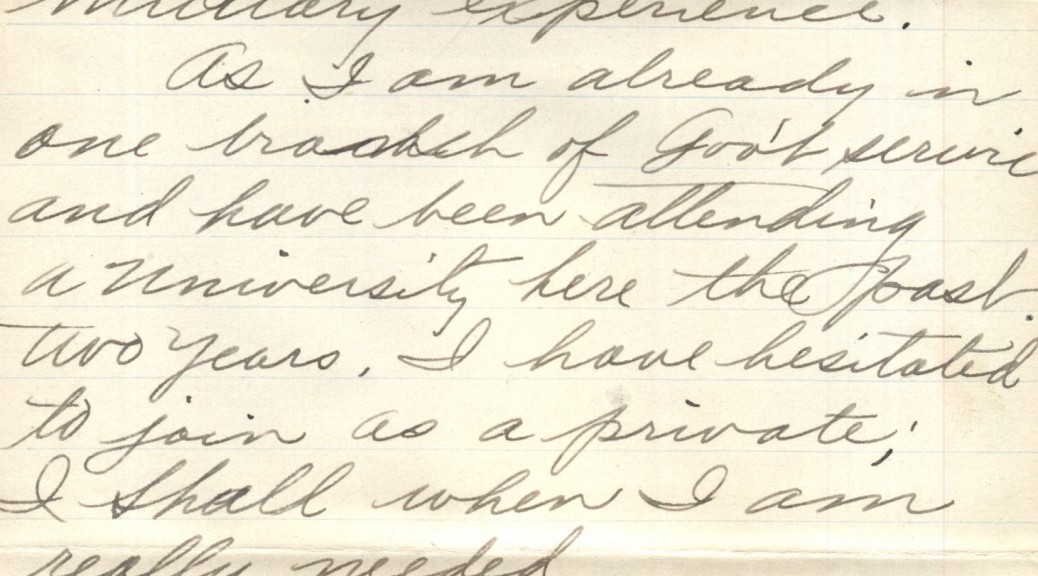 military experience.
As I am already in
one branch of Gov't service
and have been attending
a University here the past
two years, I have hesitated
to join as a private;
I shall when I am
really needed